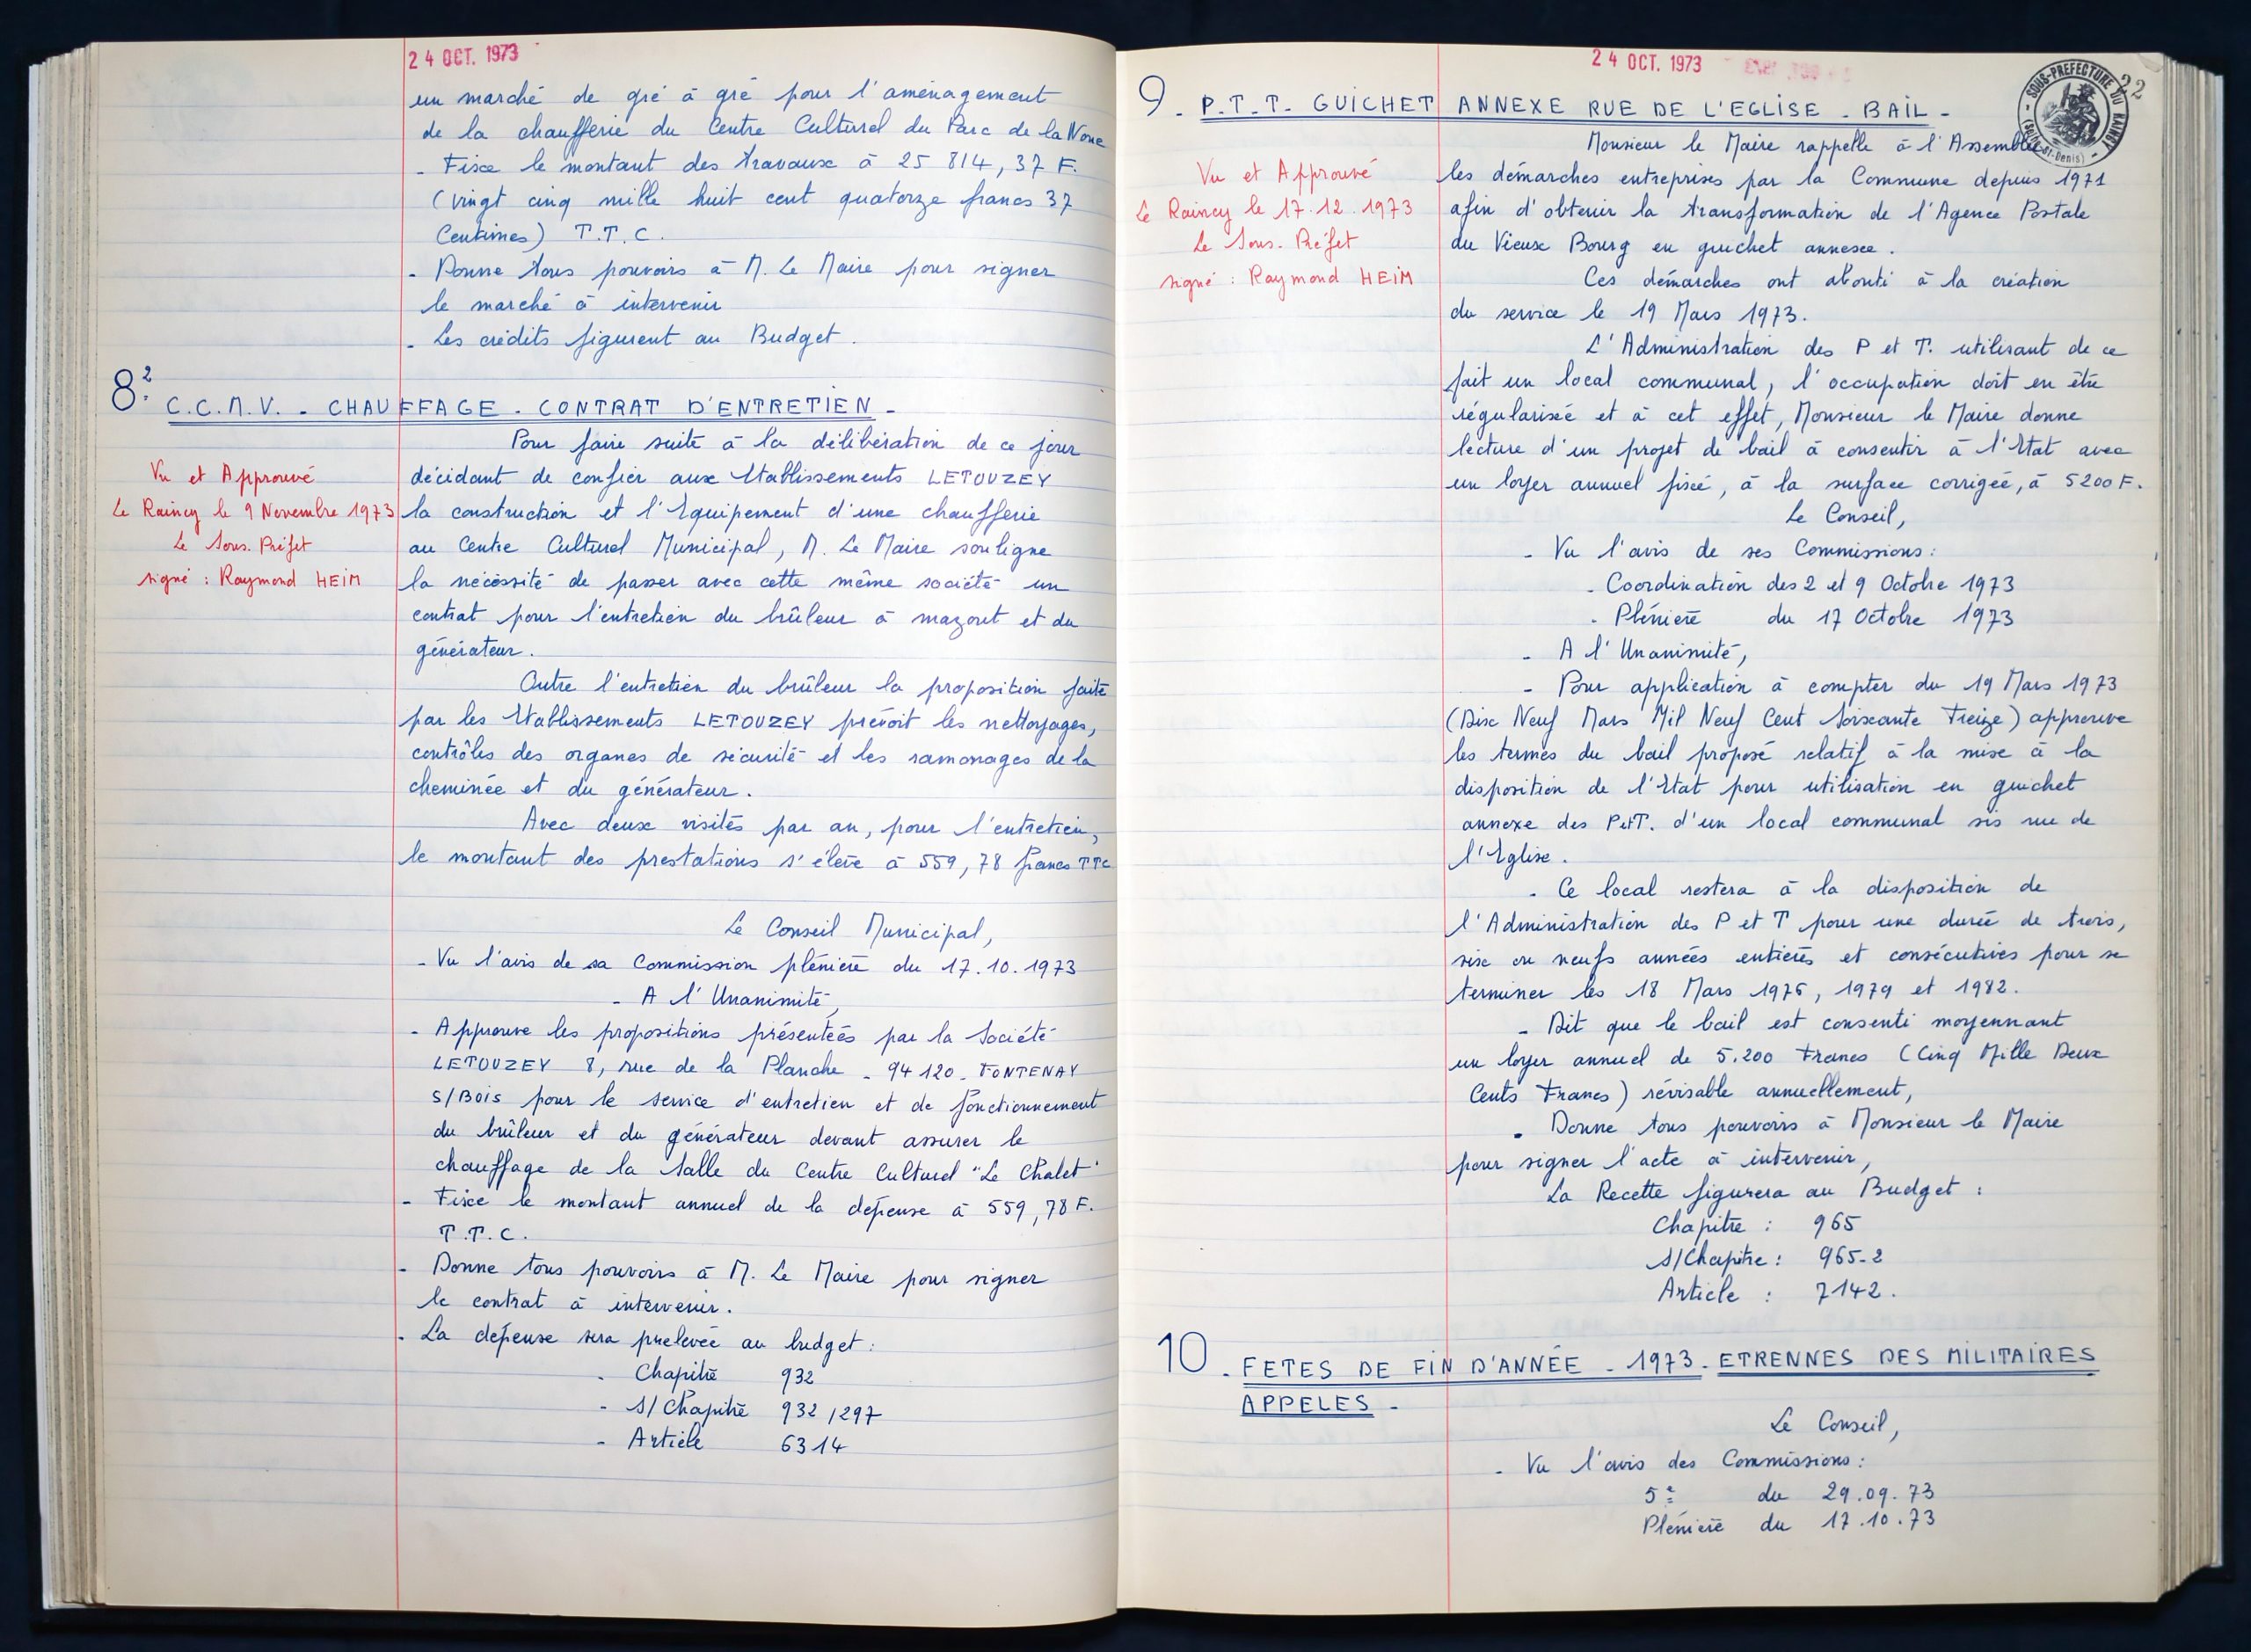 24 OCT. 1973
un marché de gré à gré pour l'aménagement
de la chaufferie du Centre Culturel du Parc de la Noue
- Fixe le montant des travaux à 25 814, 37 F.
(vingt cinq mille huit cent quatorze francs 37
Centimes) T.T.C.
- Donne tous pouvoirs à M. Le Maire pour signer
le marché à intervenir
- Les crédits figurent au Budget.
8.2 C.C.M.V. - CHAUFFAGE - CONTRAT D'ENTRETIEN -
Pour faire suite à la délibération de ce jour
décidant de confier aux Etablissements LETOUZEY
la construction et l'Equipement d'une chaufferie
au Centre Culturel Municipal, M. Le Maire souligne
la nécessité de passer avec cette même société un
contrat pour l'entretien du brûleur à mazout et du
générateur.
Vu et Approuvé
Le Raincy le 9 Novembre 1973
Le Sous-Préfet
signé : Raymond HEIM
Outre l'entretien du brûleur la proposition faite
par les Etablissements LETOUZEY prévoit les nettoyages,
contrôles des organes de sécurité et les ramonages de la
cheminée et du générateur.
Avec deux visites par an, pour l'entretien,
le montant des prestations s'élève à 559, 78 francs TTC
Le Conseil Municipal,
- Vu l'avis de sa Commission plénière du 17.10.1973
- A l'Unanimité,
- Approuve les propositions présentées par la Société
LETOUZEY 8, rue de la Planche - 94 120 - FONTENAY
S/BOIS pour le service d'entretien et de fonctionnement
du brûleur et du générateur devant assurer le
chauffage de la Salle du Centre Culturel "Le Chalet"
- Fixe le montant annuel de la dépense à 559, 78 F.
T.T.C.
- Donne tous pouvoirs à M. Le Maire pour signer
le contrat à intervenir.
- La dépense sera prélevée au budget :
- Chapitre 932
- S/Chapitre 932 / 297
- Article 6314
24 OCT. 1973
22
SOUS-PREFECTURE DU RAINCY
(Seine-St-Denis)
9 - P.T.T. - GUICHET ANNEXE RUE DE L'EGLISE - BAIL -
Monsieur le Maire rappelle à l'Assemblée
les démarches entreprises par la Commune depuis 1971
afin d'obtenir la transformation de l'Agence Postale
du Vieux Bourg en guichet annexe.
Vu et Approuvé
Le Raincy le 17.12.1973
Le Sous-Préfet
signé : Raymond HEIM
Ces démarches ont abouti à la création
du service le 19 Mars 1973.
L'Administration des P et T. utilisant de ce
fait un local communal, l'occupation doit en être
régularisée et à cet effet, Monsieur le Maire donne
lecture d'un projet de bail à consentir à l'Etat avec
un loyer annuel fixé, à la surface corrigée, à 5200 F.
Le Conseil,
- Vu l'avis de ses Commissions :
- Coordination des 2 et 9 Octobre 1973
- Plénière du 17 Octobre 1973
- A l'Unanimité,
- Pour application à compter du 19 Mars 1973
(Dix Neuf Mars Mil Neuf Cent Soixante Treize) approuve
les termes du bail proposé relatif à la mise à la
disposition de l'Etat pour utilisation en guichet
annexe des P et T. d'un local communal sis rue de
l'Eglise.
- Ce local restera à la disposition de
l'Administration des P et T pour une durée de trois,
six ou neufs années entières et consécutives pour se
terminer les 18 Mars 1976, 1979 et 1982.
- Dit que le bail est consenti moyennant
un loyer annuel de 5.200 Francs (Cinq Mille Deux
Cents Francs) révisable annuellement,
- Donne tous pouvoirs à Monsieur le Maire
pour signer l'acte à intervenir,
La Recette figurera au Budget :
Chapitre : 965
S/Chapitre : 965-2
Article : 7142.
10 - FETES DE FIN D'ANNÉE - 1973 - ETRENNES DES MILITAIRES
APPELES -
Le Conseil,
- Vu l'avis des Commissions :
5e du 29.09.73
Plénière du 17.10.73